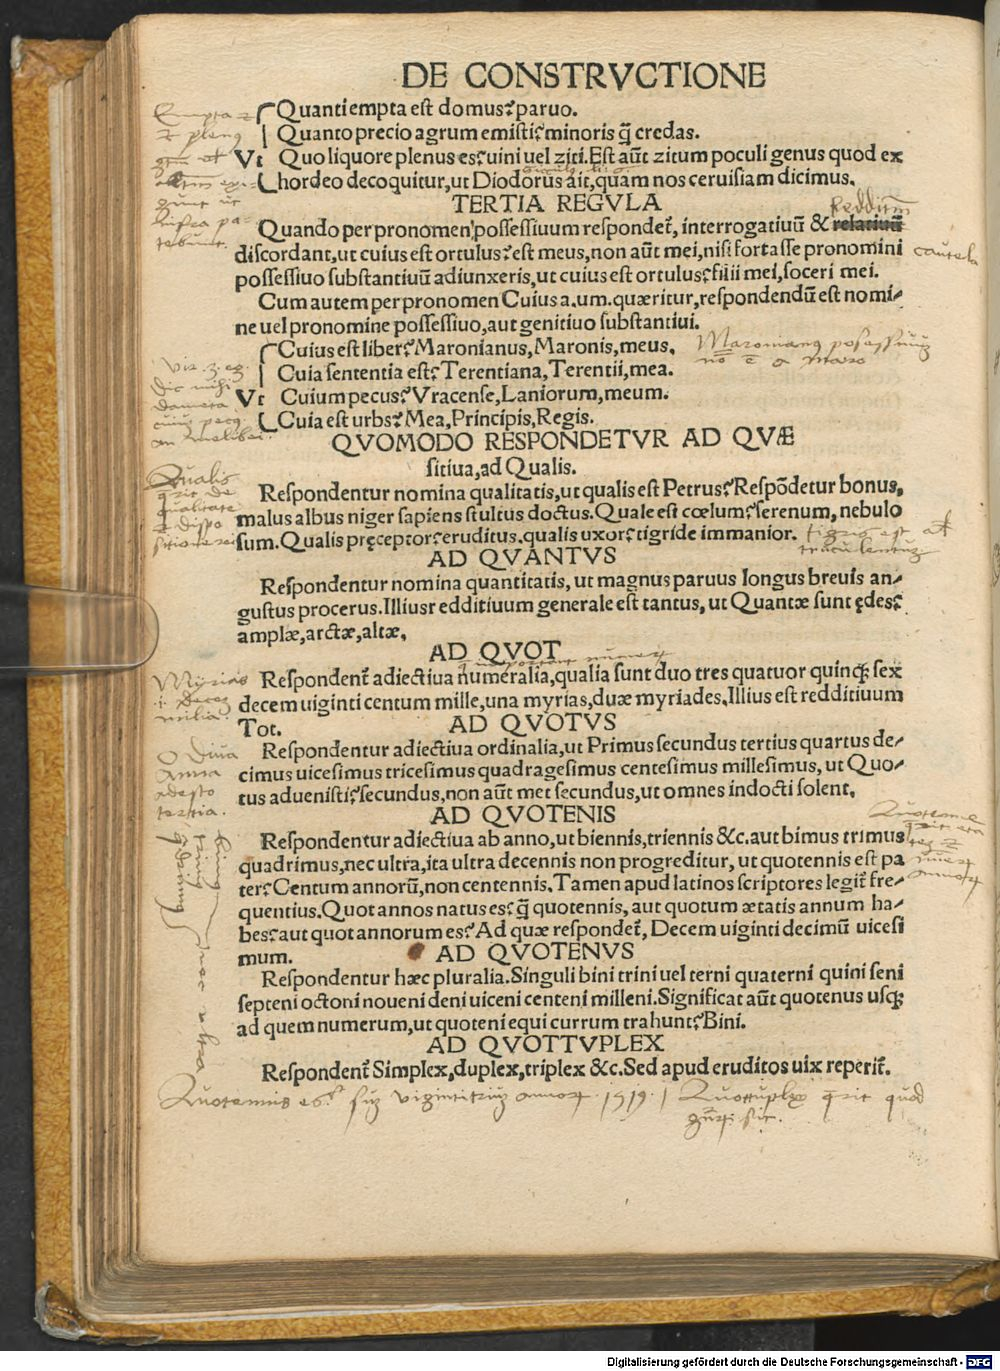 DE CONSTRVCTIONE
Quanti empta est domus? paruo.
Quanto precio agrum emisti? minoris q̃ credas.
Vt Quo liquore plenus es? uini uel ziti. Est aut̃ zitum poculi genus quod ex
hordeo decoquitur, ut Diodorus ait, quam nos ceruisiam dicimus.
TERTIA REGVLA
Redditiuũ
Quando per pronomen possessiuum respondet̃, interrogatiuũ & relatiuũ
discordant, ut cuius est ortulus? est meus, non aut̃ mei, nisi fortasse pronomini
cautela
possessiuo substantiuũ adiunxeris, ut cuius est ortulus? filii mei, soceri mei.
Cum autem per pronomen Cuius a.um. quæritur, respondendũ est nomi/
ne uel pronomine possessiuo, aut genitiuo substantiui.
Cuius est liber? Maronianus, Maronis, meus.
Cuia sententia est? Terentiana, Terentii, mea.
Vt Cuium pecus? Vracense, Laniorum, meum.
Cuia est urbs? Mea, Principis, Regis.
QVOMODO RESPONDETVR AD QVÆ
sitiua, ad Qualis.
Respondentur nomina qualitatis, ut qualis est Petrus? Respõdetur bonus,
malus albus niger sapiens stultus doctus. Quale est cœlum? serenum, nebulo
sum. Qualis pręceptor? eruditus. qualis uxor? tigride immanior.
Qualis
q̃rit de
qualitate
& dispo
sitione rei
AD QVANTVS
Respondentur nomina quantitatis, ut magnus paruus longus breuis an/
gustus procerus. Illiusr edditiuum generale est tantus, ut Quantæ sunt ędes?
amplæ, arctæ, altæ,
AD QVOT
Respondent̃ adiectiua numeralia, qualia sunt duo tres quatuor quinq; sex
decem uiginti centum mille, una myrias, duæ myriades. Illius est redditiuum
Tot.
Myrias
.i. decez
milia.
AD QVOTVS
Respondentur adiectiua ordinalia, ut Primus secundus tertius quartus de/
cimus uicesimus tricesimus quadragesimus centesimus millesimus, ut Quo/
tus aduenisti? secundus, non aut̃ met secundus, ut omnes indocti solent.
O diua
Anna
adesto
tertia.
AD QVOTENIS
Respondentur adiectiua ab anno, ut biennis, triennis &c. aut bimus trimus
quadrimus, nec ultra, ita ultra decennis non progreditur, ut quotennis est pa
ter? Centum annorũ, non centennis. Tamen apud latinos scriptores legit̃ fre/
quentius. Quot annos natus es? q̃ quotennis, aut quotum ætatis annum ha/
bes? aut quot annorum es? Ad quæ respondet̃, Decem uiginti decimũ uicesi
mum.
AD QVOTENVS
Respondentur hæc pluralia. Singuli bini trini uel terni quaterni quini seni
septeni octoni noueni deni uiceni centeni milleni. Significat aut̃ quotenus usq;
ad quem numerum, ut quoteni equi currum trahunt? Bini.
AD QVOTTVPLEX
Respondent̃ Simplex, duplex, triplex &c. Sed apud eruditos uix reperit̃.
Quotennis es? sum viginti trium annorum. 1519. Quottuplex q̃rit quod
Digitalisierung gefördert durch die Deutsche Forschungsgemeinschaft - DFG